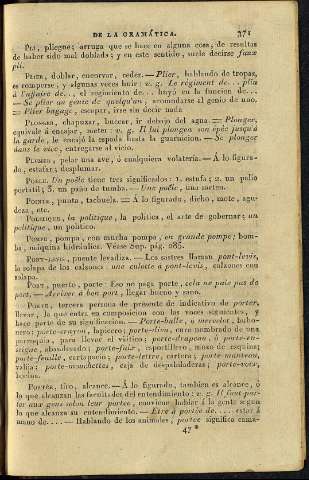 DE LA GRAMÁTICA. 371
Pli, pliegue; arruga que se hace en alguna cosa, de resultas
de haber sido mal doblada; y en este sentido, suele decirse faux
pli.
Plier, doblar, encorvar, ceder. — Plier, hablando de tropas,
es romperse, y algunas veces huir: v. g. Le régiment de... plia
à l'affaire de... el regimiento de... huyó en la funcion de...
— Se plier au génie de quelqu'un, acomodarse al genio de uno.
— Plier bagage, escapar, irse sin decir nada
Plonger, chapuzar, buceer, ir debajo del agua — Plonger,
equivale á ensajar, meter: v. g. Il lui plongea son épée jusqu'à
la garde, le encajó la espada hasta la guarnicion. — Se plonger
dans le vice, entregarse al vicio.
Plumer, pelar una ave, ó cualquiera volatería. — Á lo figura-
do, estafar; desplumar.
Poêle. Un poêle tiene tres significados: 1. estufa; 2. un palio
portatil; 3. un paño de tumba. — Une poêle, una sarten.
Pointe, punta, tachuela. — Á lo figurado, dicho, mote, agu-
deza, etc.
Politique, la politique, la política, el arte de gobernar; un
politique, un político.
Pompe, pompa, con mucha pompa, en grande pompe; bom-
ba, máquina hidráulica. Véase sup. pág. 285.
Pont-levis, puente levadiza. — Los sastres llaman pont-levis,
la solapa de los calzones: une culotte à pont-levis, calzones con
solapa.
Port, puerto, porte: Eso no paga porte, cela ne paie pas de
port. — Arriver à bon port, llegar bueno y sano.
Porte, tercera persona de presente de indicativo de porter,
llevar, la que entra en composicion con las voces siguientes, y
hace parte de su significacion. — Porte-balle, ó mercelot, buho-
nero; porte-crayon, lapicero; porte-dieu, cura nombrado de una
parroquia, para llevar el viático; porte-drapeau, ó porte-en-
seigne, abanderado; porte-faix, esportillero, mozo de esquina;
porte-feuille, cartapacio; porte-lettre, cartera; porte-manteau,
valija; porte-mouchettes, caja de despabiladeras; porte-voix,
bocina.
Portée, tiro, alcance. — Á lo figurado, tambien es alcance, ó
lo que alcanzan las facultades del entendimiento: v. g. Il faut par-
ler aux gens selon leur portée, conviene hablar á la gente segun
lo que alcanza su entendimiento. — Etre à portée de.... estar á
mano de.... — Hablando de los animales, portée significa cama-
47 *